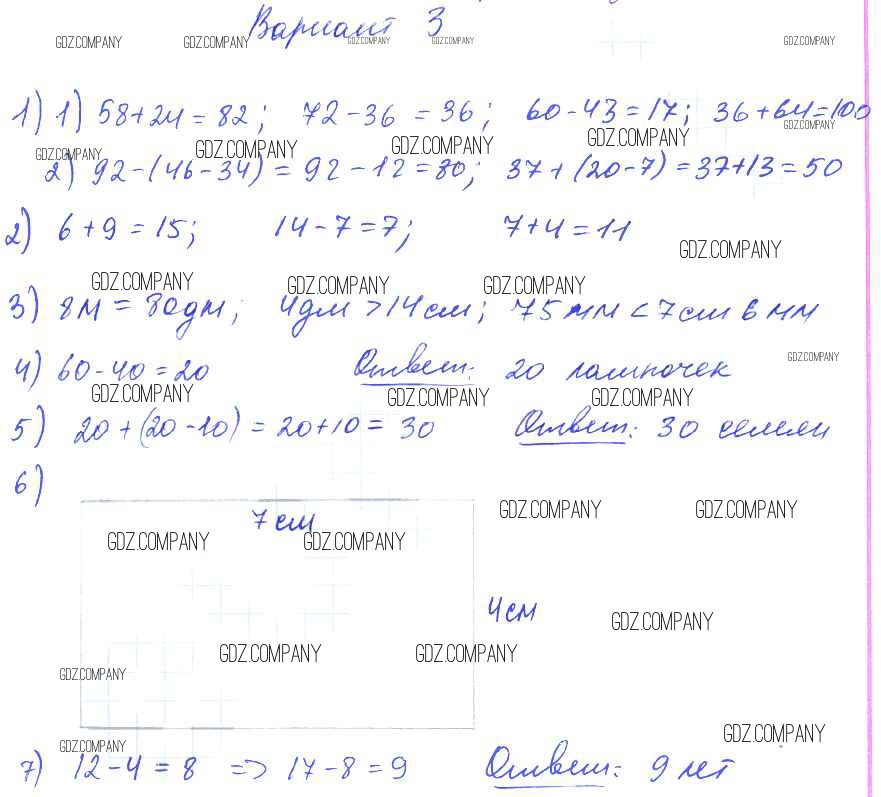 Вариант 3
GDZ.COMPANY GDZ.COMPANY GDZ.COMPANY GDZ.COMPANY GDZ.COMPANY
1) 1) 58+24 = 82; 72-36 = 36; 60-43 = 17; 36+64=100
GDZ.COMPANY GDZ.COMPANY GDZ.COMPANY GDZ.COMPANY GDZ.COMPANY
2) 92-(46-34) = 92-12=80; 37+(20-7)=37+13=50
2) 6+9=15; 14-7=7; 7+4=11
GDZ.COMPANY
GDZ.COMPANY GDZ.COMPANY GDZ.COMPANY
3) 8м = 80дм; 4дм >14см; 75мм <7см 6мм
4) 60-40=20 Ответ: 20 лампочек
GDZ.COMPANY
GDZ.COMPANY GDZ.COMPANY GDZ.COMPANY
5) 20+(20-10) = 20+10= 30 Ответ: 30 семян
6)
7 см
GDZ.COMPANY GDZ.COMPANY
GDZ.COMPANY GDZ.COMPANY
4см
GDZ.COMPANY
GDZ.COMPANY GDZ.COMPANY
GDZ.COMPANY
GDZ.COMPANY
GDZ.COMPANY
7) 12-4=8 => 17-8=9 Ответ: 9 лет